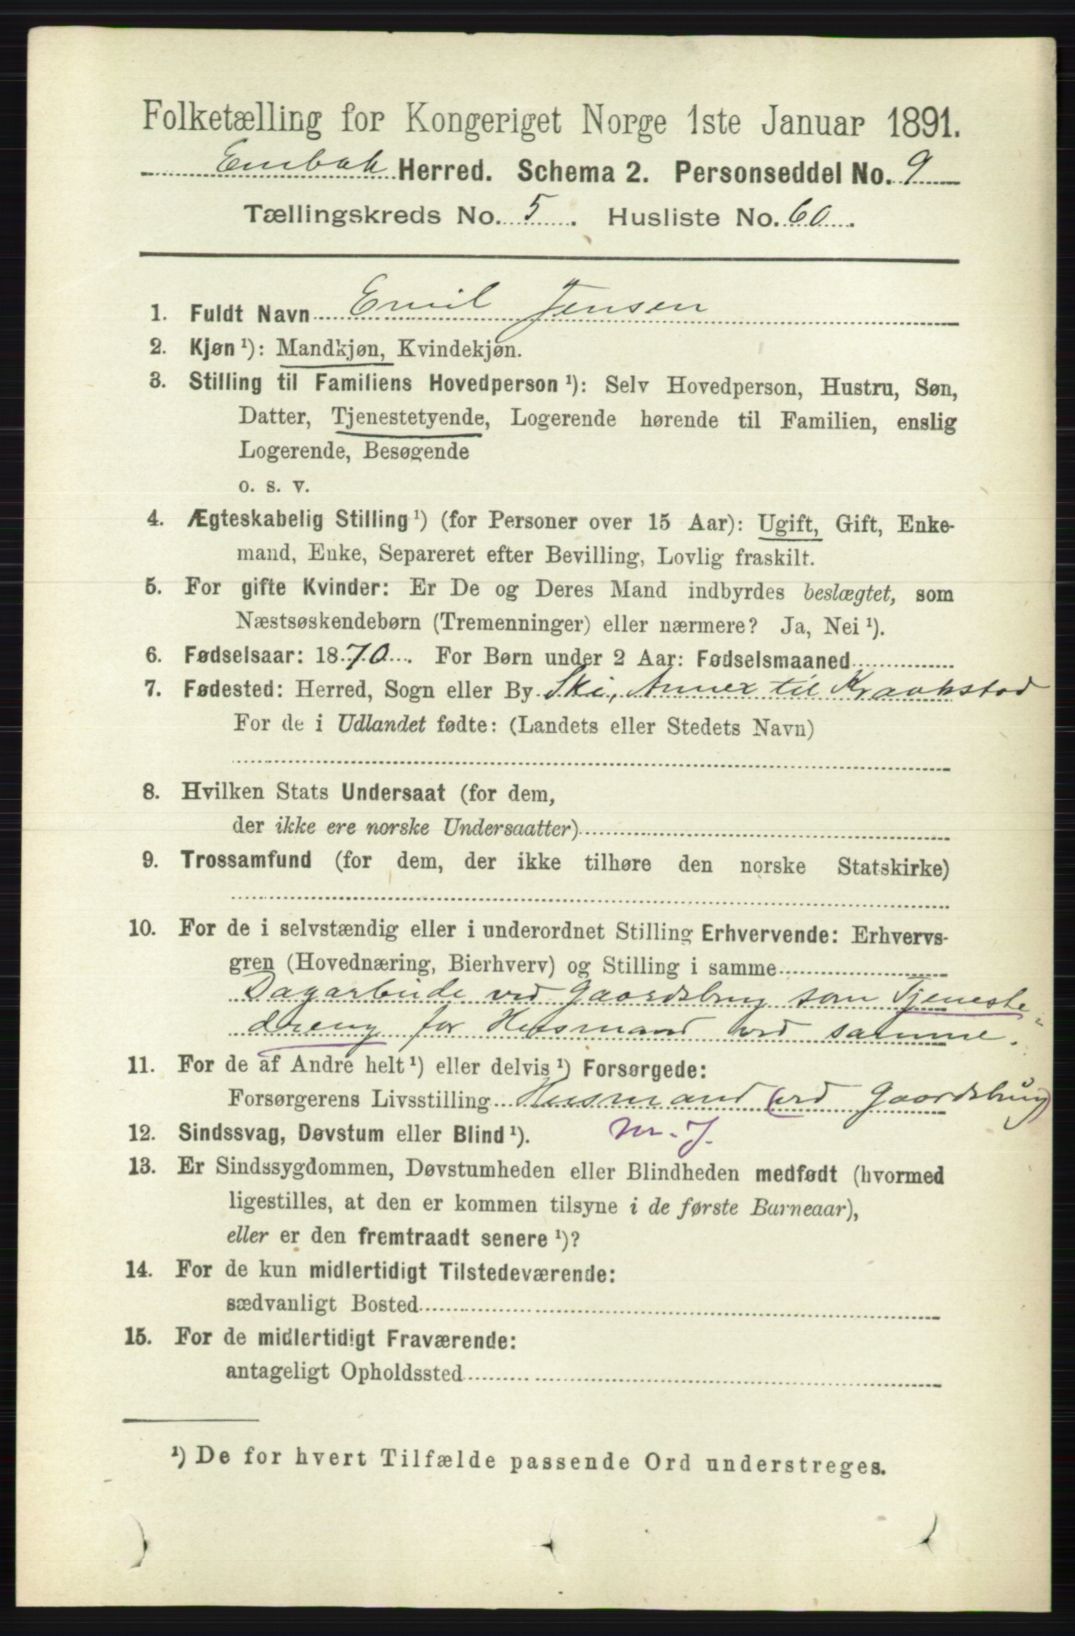 Folketælling for Kongeriget Norge 1ste Januar 1891.
Enebak Herred. Schema 2. Personseddel No. 9
Tællingskreds No. 5. Husliste No. 60.
1. Fuldt Navn Emil Jensen
2. Kjøn ¹): Mandkjøn, Kvindekjøn.
3. Stilling til Familiens Hovedperson ¹): Selv Hovedperson, Hustru, Søn,
Datter, Tjenestetyende, Logerende hørende til Familien, enslig
Logerende, Besøgende
o. s. v.
4. Ægteskabelig Stilling ¹) (for Personer over 15 Aar): Ugift, Gift, Enke-
mand, Enke, Separeret efter Bevilling, Lovlig fraskilt.
5. For gifte Kvinder: Er De og Deres Mand indbyrdes beslægtet, som
Næstsøskendebørn (Tremenninger) eller nærmere? Ja, Nei ¹).
6. Fødselsaar: 1870. For Børn under 2 Aar: Fødselsmaaned
7. Fødested: Herred, Sogn eller By Ski, Annex til Kraakstad
For de i Udlandet fødte: (Landets eller Stedets Navn)
8. Hvilken Stats Undersaat (for dem,
der ikke ere norske Undersaatter)
9. Trossamfund (for dem, der ikke tilhøre den norske Statskirke)
10. For de i selvstændig eller i underordnet Stilling Erhvervende: Erhvervs-
gren (Hovednæring, Bierhverv) og Stilling i samme
Dagarbeide ved Gaardsbrug som Tjeneste-
dreng for Husmand ved samme.
11. For de af Andre helt ¹) eller delvis ¹) Forsørgede:
Forsørgerens Livsstilling Husmand (ved Gaardsbrug)
12. Sindssvag, Døvstum eller Blind ¹). m. J.
13. Er Sindssygdommen, Døvstumheden eller Blindheden medfødt (hvormed
ligestilles, at den er kommen tilsyne i de første Barneaar),
eller er den fremtraadt senere ¹)?
14. For de kun midlertidigt Tilstedeværende:
sædvanligt Bosted
15. For de midlertidigt Fraværende:
antageligt Opholdssted
¹) De for hvert Tilfælde passende Ord understreges.